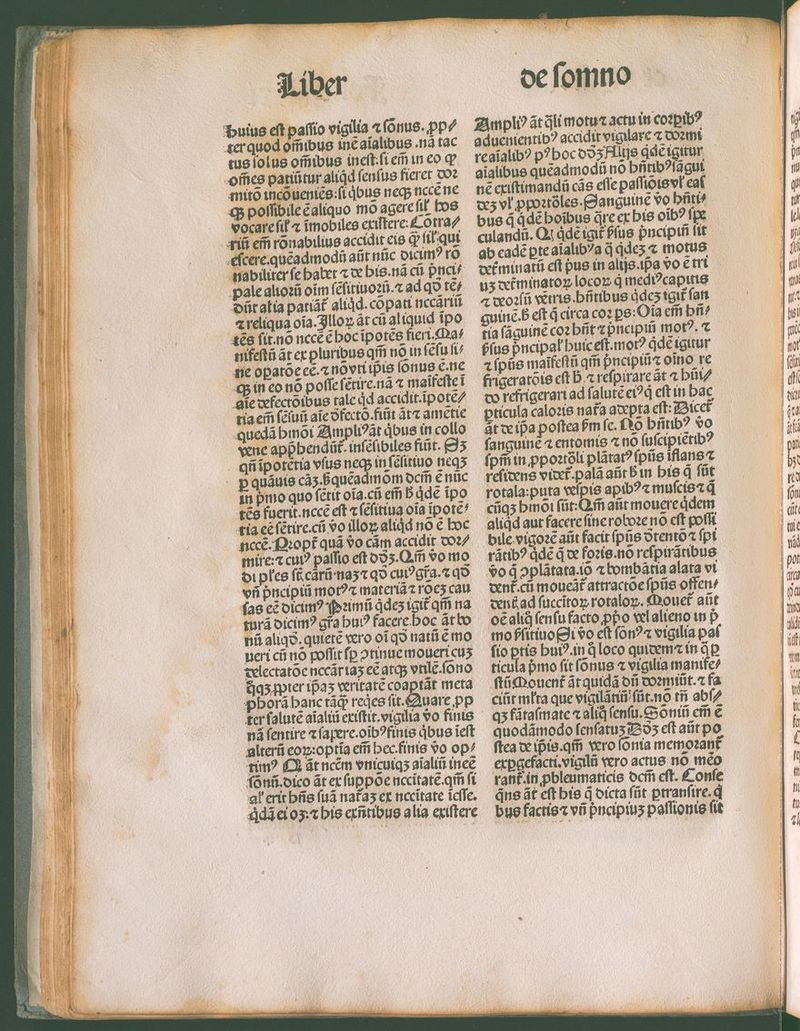 Liber
de somno
huius est passio vigilia ⁊ sōnus. ꝓp⸗
ter quod om̄ibus inē aīalibus .nā tac
tus solus om̄ibus inest.si em̄ in eo ꝙ
om̄es patiūtur aliqd̄ sensus fieret doꝛ
mitō incōueniēs:si q̇bus neqꝫ nccē ne
qꝫ possibile ē aliquo mō agere sil̛ hos
vocare sil̛ ⁊ īmobiles existere: Cōtra⸗
riū em̄ rōnabilius accidit eis ꝙ sil̛ qui
escere.quēadmodū aūt nūc dicimꝰ rō
nabiliter se habet ⁊ de his.nā cū p̄nci⸗
pale alioꝛū oīm sēsitiuoꝛū.⁊ ad qd̄ tē⸗
dūt alia patiāt̛ aliqd̄. cōpati nccāriū
⁊ reliqua oīa. Illoꝝ āt cū aliquid īpo
tēs sit.nō nccē ē hoc īpotēs fieri. Ma⸗
nifestū āt ex pluribus qm̄ nō in sēsu si⸗
ne opatōe eē.⁊ nō vti ip̄is sōnus ē.ne
qꝫ in eo nō posse sētire.nā ⁊ maīfeste ī
aīe defectōibus tale qd̄ accidit.īpotē⸗
tia em̄ sēsuū aīe d̄fectō.fiūt āt ⁊ amētie
quedā hm̄oi Ampliꝰ āt q̇bus in collo
vene app̄hendūt̛. insēsibiles fiūt. Sꝫ
qn̄ īpotētia vsus neqꝫ in sēsitiuo neqꝫ
ꝑ quāuis cāꝫ.ß quēadmōm dcm̄ ē nūc
in p̄mo quo sētit oīa.cū em̄ ß q̇dē īpo
tēs fuerit.nccē est ⁊ sēsitiua oīa īpotē⸗
tia eē sētire.cū v̄o illoꝝ aliqd̄ nō ē hoc
nccē. Pꝛopt̛ quā v̄o cām accidit doꝛ⸗
mire:⁊ cuiꝰ passio est dd̄ꝫ. Qm̄ v̄o mo
di pl̛es sūt cārū ꝫ naꝫ ⁊ qd̄ cuiꝰ gr̄a.⁊ qd̄
vn̄ pncipiū motꝰ ⁊ materiā ⁊ rōeꝫ cau
sas eē dicimꝰ Pꝛimū q̇deꝫ igit̛ qm̄ na
turā dicimꝰ gr̄a huiꝰ facere.hoc āt bo
nū aliqd̄. quietē vero oī qd̄ natū ē mo
ueri cū nō possit sꝑ ꝯtinue moueri cuꝫ
delectatōe nccāriaꝫ eē atqꝫ vtilē.sōno
q̇qꝫ ꝓpter ip̄aꝫ veritatē coaptāt meta
phorā hanc tāqꝫ req̇es sit. Quare ꝓp
ter salutē aīaliū existit.vigilia v̄o finis
nā sentire ⁊ sapere.oībꝰ finis q̇bus īest
alterū eoꝝ:optīa em̄ hec.finis v̄o op⸗
timꝰ āt ncēm vnicuiqꝫ aīaliū ineē
sōnū.dico āt ex suppōe nccītatē.qm̄ si
al̛ erit hn̄s suā nat̛aꝫ ex nccītate īesse.
q̇dā ei oꝫ:⁊ his exn̄tibus alia existere
Ampliꝰ āt q̄li motu ⁊ actu in coꝛꝑibꝰ
aduenientibꝰ accidit vigilare ⁊ doꝛmi
re aīalibꝰ pꝰ hoc dd̄ꝫ Alijs q̇dē igitur
aīalibus quēadmodū nō hn̄tibꝰ sāgui
nē existimandū cās esse passiōis vl̛ eas
deꝫ vl̛ ꝓpoꝛtōles. Sanguinē v̄o hn̄ti⸗
bus q̄ q̇dē hoībus q̇re ex his oībꝰ spe
culandū. Qꝫ q̇dē igit̛ ßsus pncipiū sit
ab eadē ꝑte aīalibꝰ a q̄ q̇deꝫ ⁊ motus
det̛minatū est pus in alijs.ip̄a v̄o ē tri
uꝫ det̛minatoꝝ locoꝝ q̄ mediꝰ capitis
⁊ deoꝛsū vētris.hn̄tibus q̇deꝫ igit̛ san
guinē.ß est q̄ circa coꝛ ꝑs: Oīa em̄ hn̄⸗
tia sāguinē coꝛ hn̄t ⁊ pncipiū motꝰ. ⁊
ßsus pncipal̛ huic est.motꝰ q̇dē igitur
⁊ spūs maīfestū qm̄ pncipiū ⁊ oīno re
frigeratōis est ß. ⁊ respirare āt ⁊ hūi⸗
do refrigerari ad salutē eiꝰ q̄ est in hac
ꝑticula caloris nat̛a adepta est: Dicet̛
āt de ip̄a postea ßm se. Nō hn̄tibꝰ v̄o
sanguinē ⁊ entomis ⁊ nō suscipiētibꝰ
spm̄ in ꝓpoꝛtōli plātatꝰ spūs īflans ⁊
residens videt̛.palā aūt ß in his q̄ sūt
rotala:puta vespis apibꝰ ⁊ muscis ⁊ q̄
cūqꝫ hm̄oi sūt: Qm̄ aūt mouere q̇dem
aliqd̄ aut facere sine roboꝛe nō est possi
bile.vigoꝛē aūt facit spūs d̄tentō ⁊ spi
rātibꝰ q̇dē q̄ de foris.nō respirātibus
v̄o q̄ ꝯplātata.iō ⁊ bombātia alata vi
dent̛.cū moueāt̛ attractōe spūs offen⸗
dent̛ ad succītoꝝ rotaloꝝ. Mouet̛ aūt
oē aliq̄ sensu facto.ꝓp̄o vel alieno in p̄
mo ßsitiuo Si v̄o est sōnꝰ ⁊ vigilia pas
sio ꝑtis huiꝰ.in q̄ loco quidem ⁊ in q̄ ꝑ
ticula p̄mo sit sōnus ⁊ vigilia manife⸗
stū Mouent̛ āt quidā dū doꝛmiūt.⁊ fa
ciūt ml̛ta que vigilātiū sūt.nō tn̄ abs⸗
qꝫ fātasmate ⁊ aliq̄ sensu. Sōniū em̄ ē
quodāmodo sensatuꝫ Dd̄ꝫ est aūt po
stea de ip̄is.qm̄ vero sonia memoꝛant̛
exꝑgefacti.vigilū vero actus nō mēo
rant̛.in ꝓbleumaticis dcm̄ est. Conse
q̄ns āt est his q̄ dicta sūt ꝑtransire. q̄
bus factis ⁊ vn̄ pncipiuꝫ passionis sit